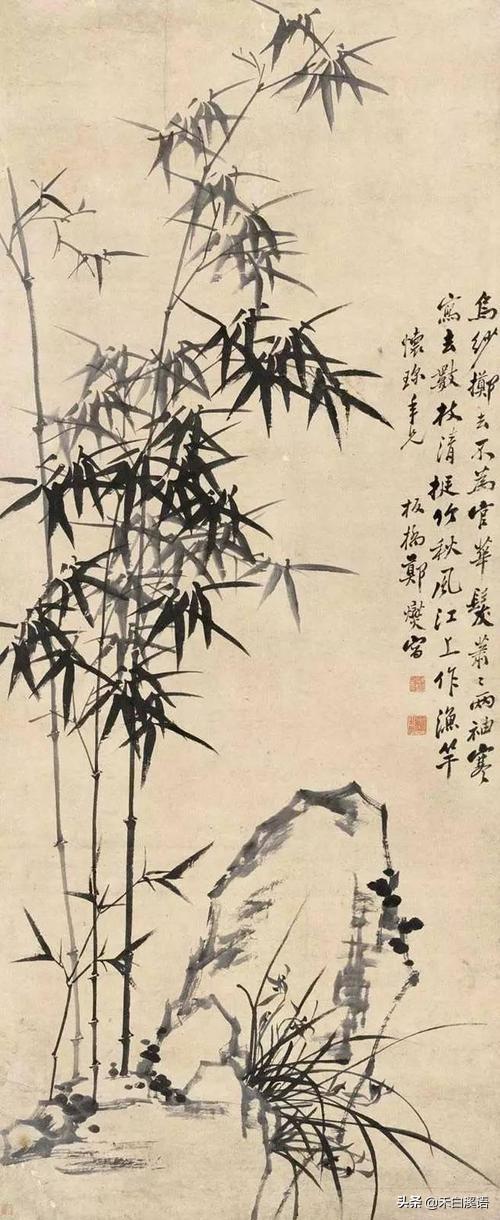 烏紗擲去不為官華髮蕭〻兩袖寒
寫去數枝清挺竹秋風江上作漁竿
懷珎年兄
板橋鄭燮寫
头条 @禾白溪语